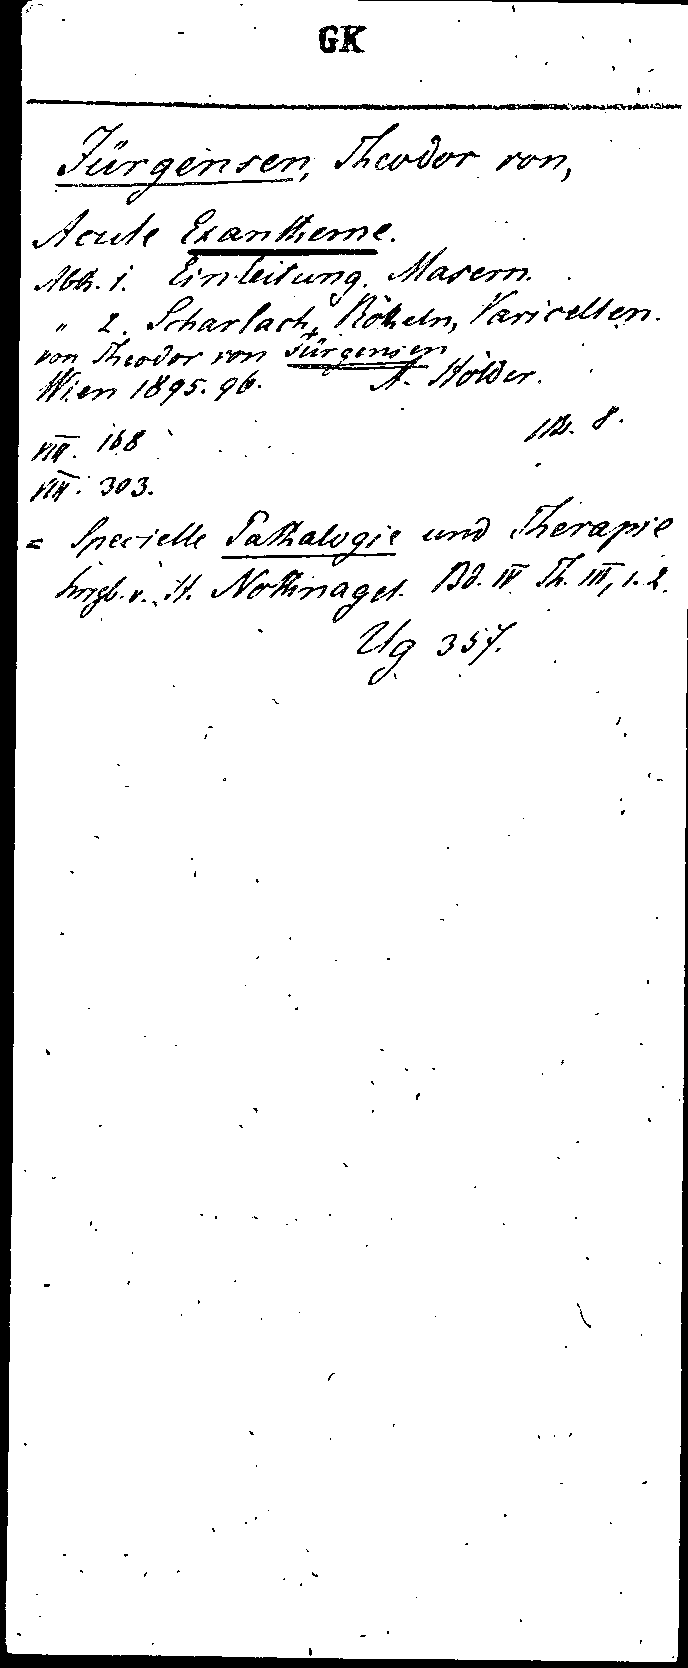 GK
Jürgensen, Theodor von,
Acute Exantheme.
Abth. 1. Einleitung. Masern.
" 2. Scharlach, Rötheln, Varicellen.
von Theodor von Jürgensen
Wien 1895. 96. A. Hölder.
VIII. 168 8.
VIII. 303.
= Specielle Pathologie und Therapie
hrsgb. v. H. Nothnagel. Bd. IV Th. III, 1. 2.
Ug 357.